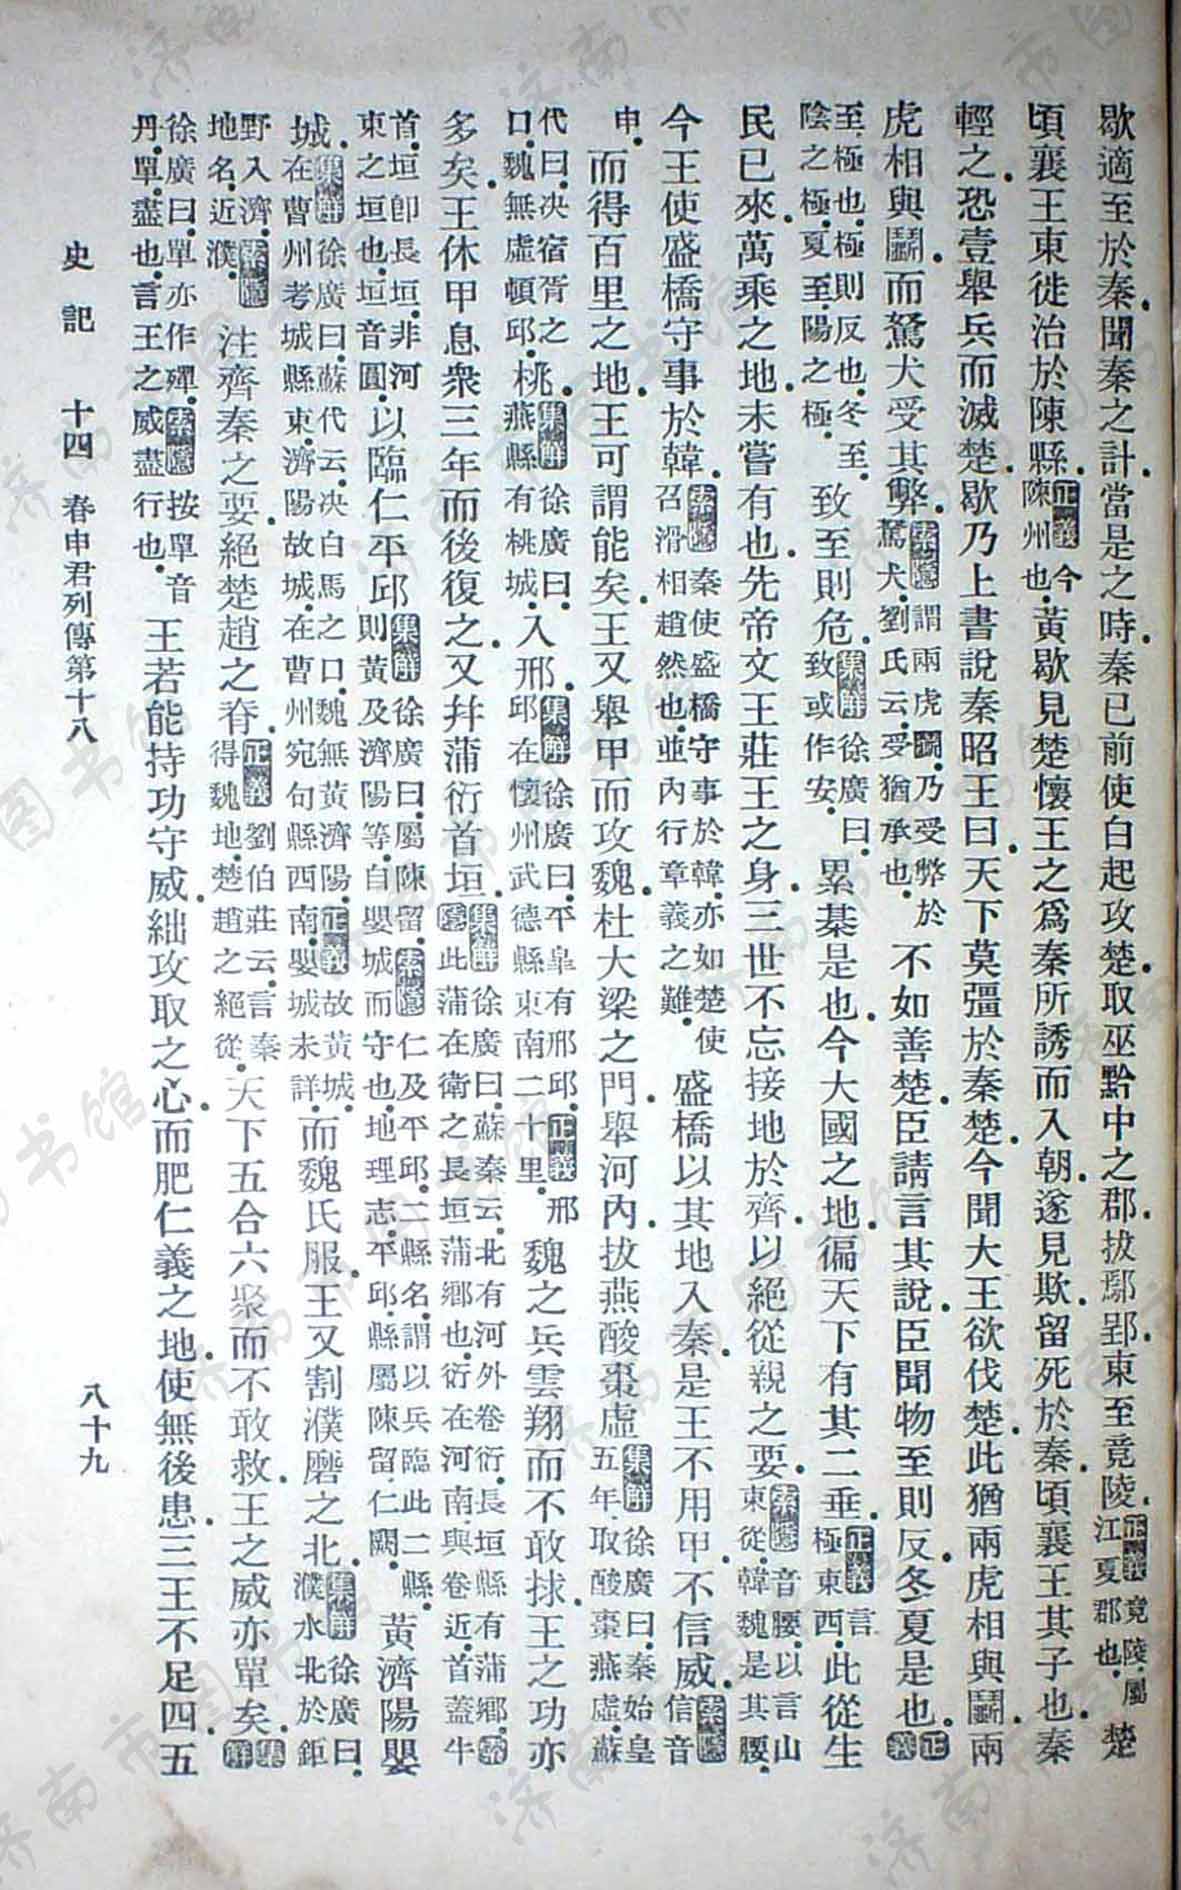 歇適至於秦．聞秦之計．當是之時．秦已前使白起攻楚．取巫黔中之郡．拔鄢郢．東至竟陵．正義竟陵．屬江夏郡也．楚
頃襄王東徙治於陳縣．正義今陳州也．黃歇見楚懷王之爲秦所誘而入朝．遂見欺．留死於秦．頃襄王其子也．秦
輕之．恐壹舉兵而滅楚．歇乃上書說秦昭王曰．天下莫彊於秦楚．今聞大王欲伐楚．此猶兩虎相與鬭．兩
虎相與鬭．而駑犬受其弊．索隱謂兩虎鬭．乃受弊於駑犬．劉氏云．受猶承也．不如善楚．臣請言其說．臣聞物至則反．冬夏是也．正義
至．極也．極則反也．冬至．陰之極．夏至．陽之極．致至則危．集解徐廣曰．致或作安．累棊是也．今大國之地．徧天下有其二垂．正義言極東西．此從生
民已來．萬乘之地．未嘗有也．先帝文王莊王之身．三世不忘接地於齊．以絕從親之要．索隱音腰．以言山東從．韓魏是其腰．
今王使盛橋守事於韓．索隱秦使盛橋守事於韓．亦如楚使召滑相趙然也．並內行章義之難．盛橋以其地入秦．是王不用甲．不信威．索隱信音
申．而得百里之地．王可謂能矣．王又舉甲而攻魏．杜大梁之門．舉河內．拔燕酸棗虛集解徐廣曰．秦始皇五年．取酸棗燕虛．蘇
代曰．决宿胥之口．魏無虛頓邱．桃．集解徐廣曰．燕縣有桃城．入邢．集解徐廣曰．平臯有邢邱．正義邢邱在懷州武德縣東南二十里．魏之兵雲翔而不敢捄．王之功亦
多矣．王休甲息衆三年而後復之．又幷蒲衍首垣．集解徐廣曰．蘇秦云．北有河外卷衍．長垣縣有蒲鄉．索隱此蒲在衛之長垣蒲鄉也．衍在河南．與卷近．首蓋牛
首．垣卽長垣．非河東之垣也．垣音圓．以臨仁平邱集解徐廣曰．屬陳留．索隱仁及平邱．二縣名．謂以兵臨此二縣．則黃及濟陽等．自嬰城而守也．地理志．平邱縣屬陳留．仁闕．黃濟陽嬰
城．集解徐廣曰．蘇代云．决白馬之口．魏無黃濟陽．正義故黃城在曹州考城縣東．濟陽故城．在曹州宛句縣西南．嬰城未詳．而魏氏服．王又割濮磨之北．集解徐廣曰．濮水北於鉅
野入濟．索隱地名．近濮．注齊秦之要．絕楚趙之脊．正義劉伯莊云．言秦得魏地．楚趙之絕從．天下五合六聚而不敢救．王之威亦單矣．集解
徐廣曰．單亦作殫．索隱按單音丹．單．盡也．言王之威盡行也．王若能持功守威．絀攻取之心．而肥仁義之地．使無後患．三王不足四．五
史記 十四 春申君列傳第十八 八十九